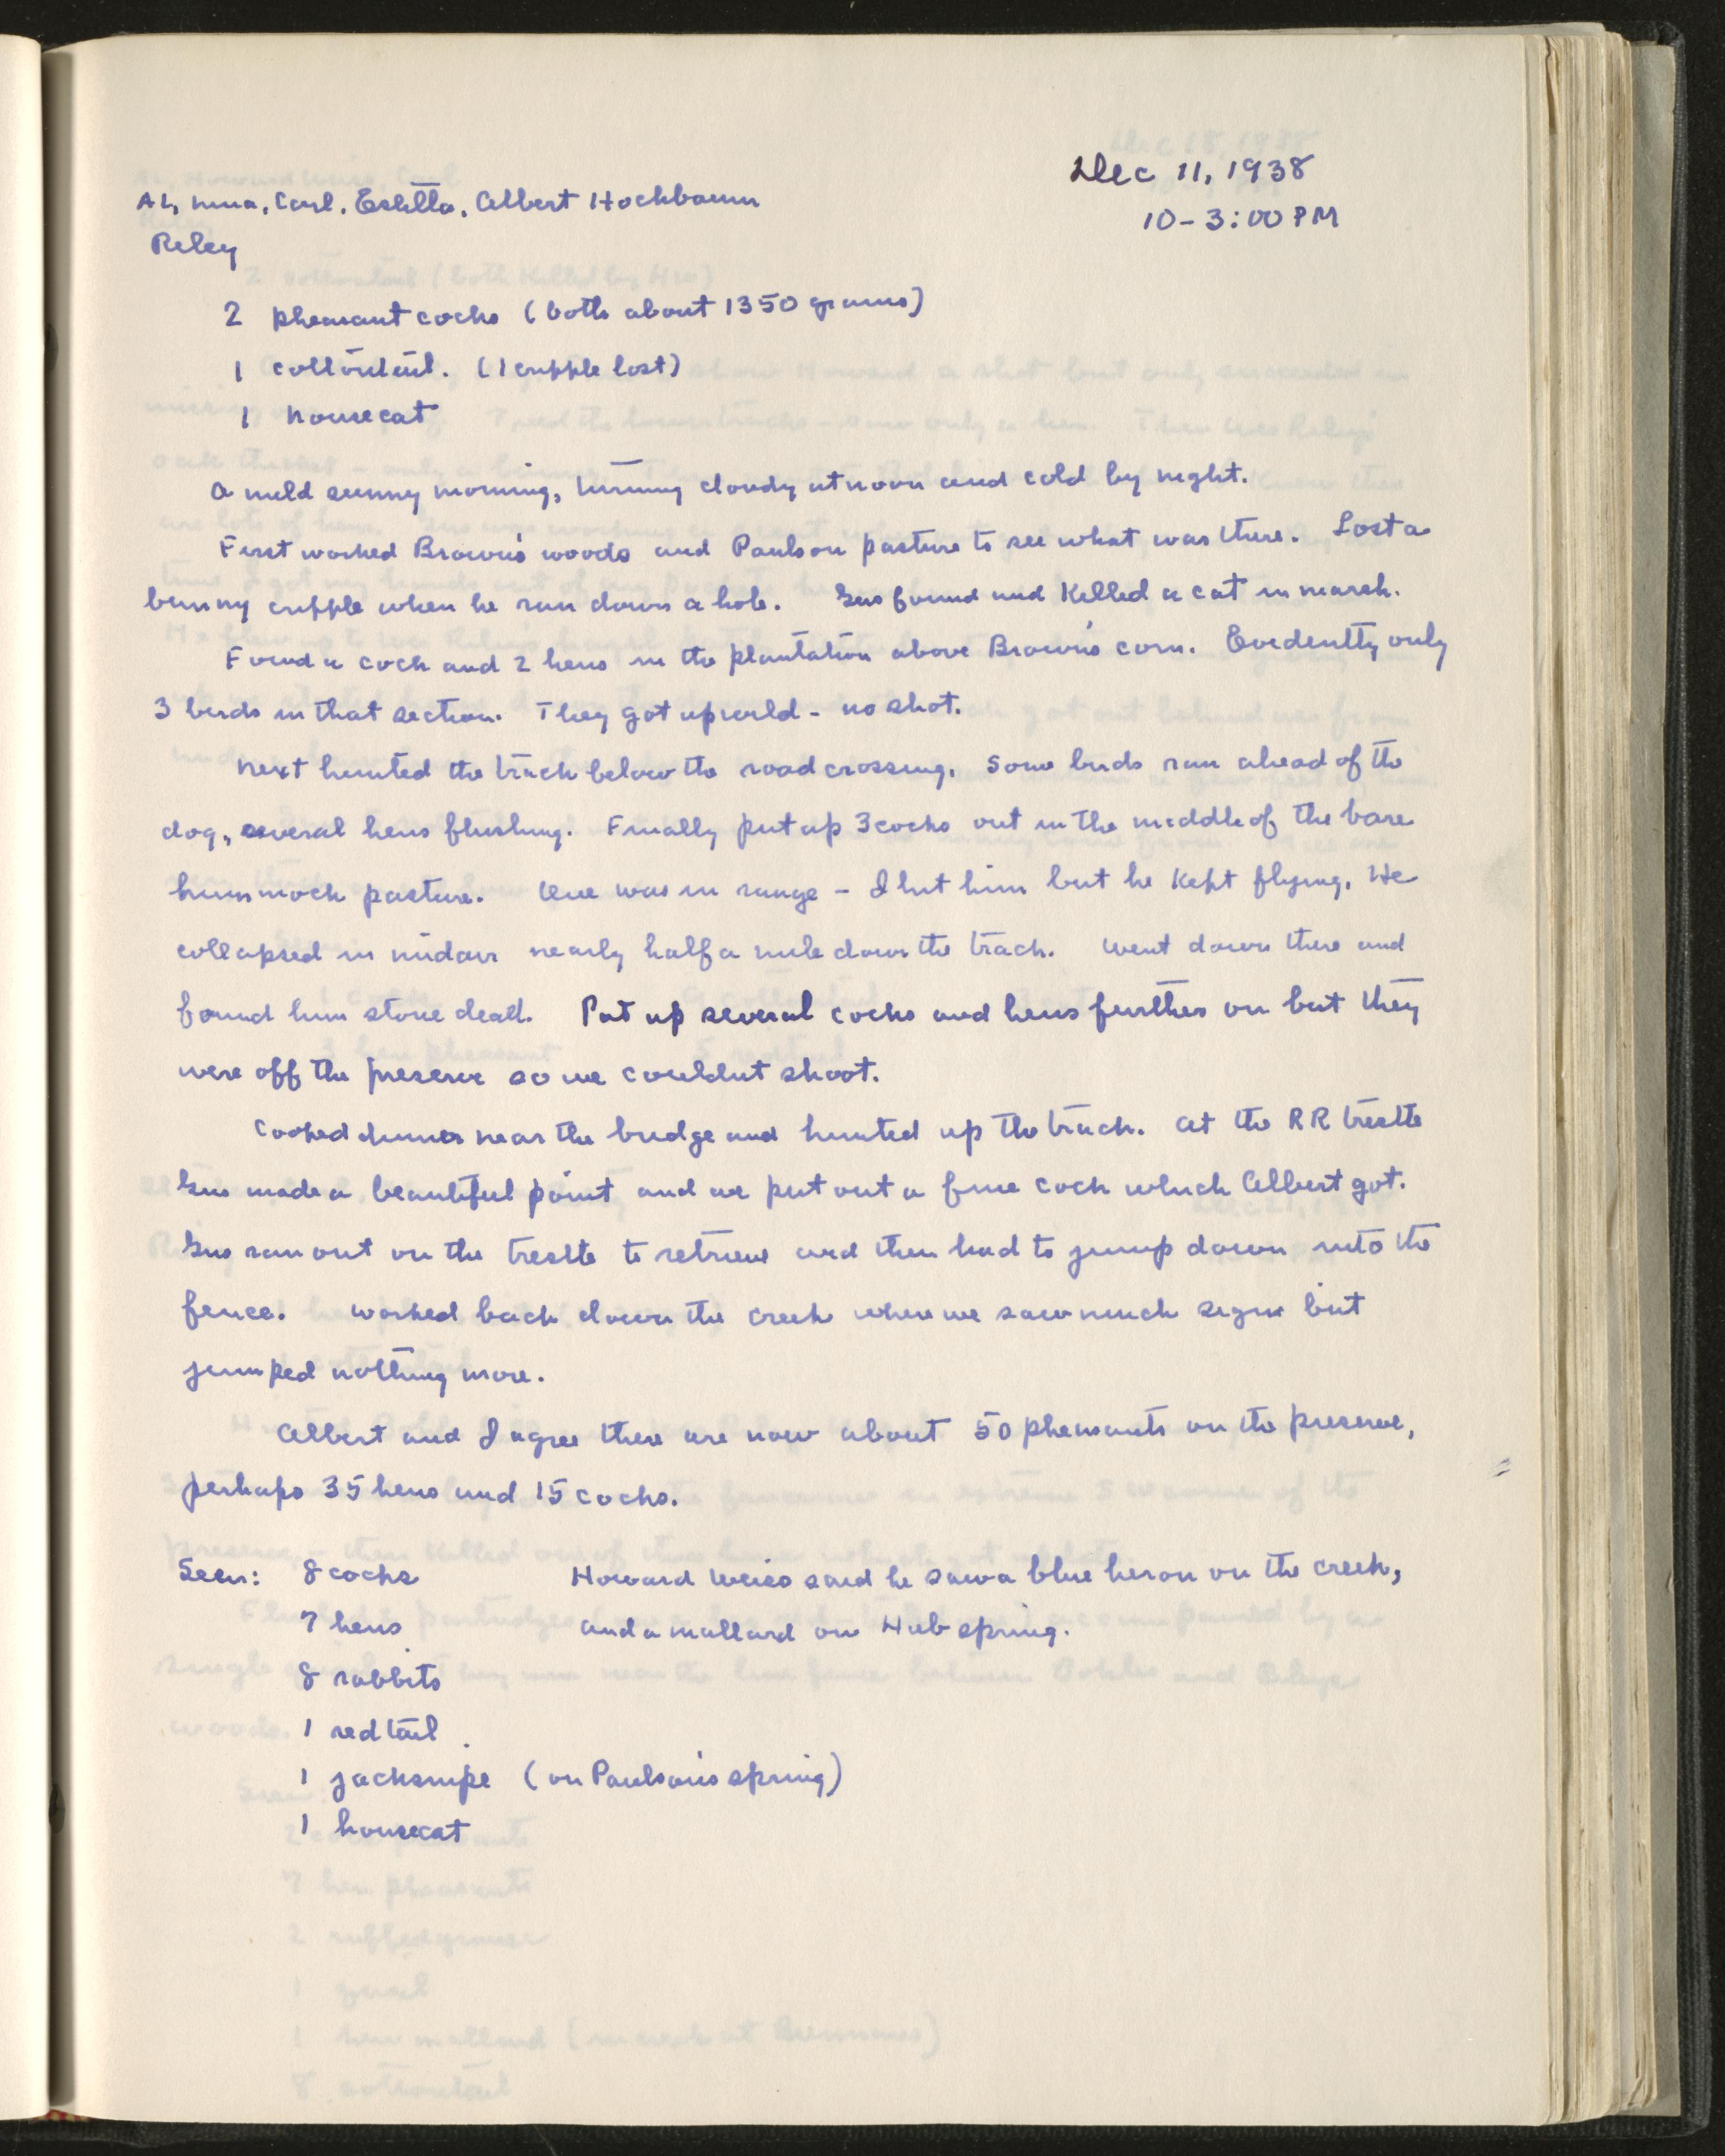 Dec 11, 1938
AL, Nina, Carl, Estella, Albert Hochbaum
10-3:00 PM
Riley
2 pheasant cocks (both about 1350 grams)
1 cottontail. (1 cripple lost)
1 housecat
A mild sunny morning, turning cloudy at noon and cold by night.
First worked Brown's woods and Paulson pasture to see what was there. Lost a
bunny cripple when he ran down a hole. Gus found and killed a cat in marsh.
Found a cock and 2 hens in the plantation above Brown's corn. Evidently only
3 birds in that section. They got up wild - no shot.
Next hunted the track below the road crossing. Some birds ran ahead of the
dog, several hens flushing. Finally put up 3 cocks out in the middle of the bare
hummock pasture. One was in range - I hit him but he kept flying. He
collapsed in midair nearly half a mile down the track. Went down there and
found him stone dead. Put up several cocks and hens further on but they
were off the preserve so we couldnt shoot.
Cooked dinner near the bridge and hunted up the track. At the RR trestle
Gus made a beautiful point and we put out a fine cock which Albert got.
Gus ran out on the trestle to retrieve and then had to jump down into the
fence. Worked back down the creek where we saw much sign but
jumped nothing more.
Albert and I agree there are now about 50 pheasants on the preserve,
perhaps 35 hens and 15 cocks.
Seen: 8 cocks Howard Weiss said he saw a blue heron on the creek,
7 hens and a mallard on Hub spring.
8 rabbits
1 redtail
1 jacksnipe (on Paulson's spring)
1 housecat